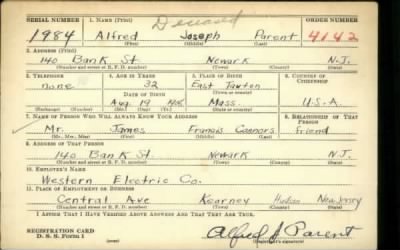 Deceased
SERIAL NUMBER 1. NAME (Print) ORDER NUMBER
1984 Alfred Joseph Parent 4142
(First) (Middle) (Last)
2. ADDRESS (Print)
140 Bank St Newark N.J.
(Number and street or R. F. D. number) (Town) (County) (State)
3. TELEPHONE 4. AGE IN YEARS 5. PLACE OF BIRTH 6. COUNTRY OF CITIZENSHIP
none 32 East Taunton
DATE OF BIRTH (Town or county)
Aug 19 Mass. U.S.A.
(Exchange) (Number) (Mo.) (Day) (Yr.) (State or country)
7. NAME OF PERSON WHO WILL ALWAYS KNOW YOUR ADDRESS 8. RELATIONSHIP OF THAT PERSON
Mr. James Francis Connors friend
(Mr., Mrs., Miss) (First) (Middle) (Last)
9. ADDRESS OF THAT PERSON
140 Bank St. Newark N.J.
(Number and street or R. F. D. number) (Town) (County) (State)
10. EMPLOYER'S NAME
Western Electric Co.
11. PLACE OF EMPLOYMENT OR BUSINESS
Central Ave Kearney Hudson New Jersey
(Number and street or R. F. D. number) (Town) (County) (State)
I AFFIRM THAT I HAVE VERIFIED ABOVE ANSWERS AND THAT THEY ARE TRUE.
REGISTRATION CARD
D. S. S. Form 1 Alfred J Parent
(Registrant's signature)